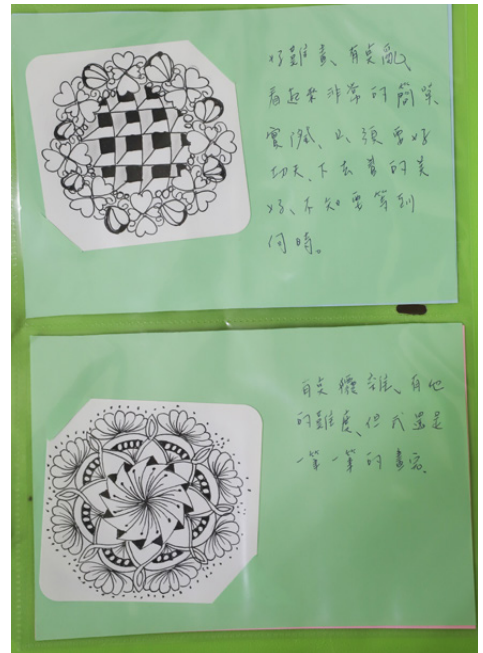 好難畫、有莫亂、
看起來非常的簡單
實際、必須要好
功夫、下去畫的美
好、不知要等到
何時。
有莫複雜、有他
的難度、但我還是
一筆一筆的畫完